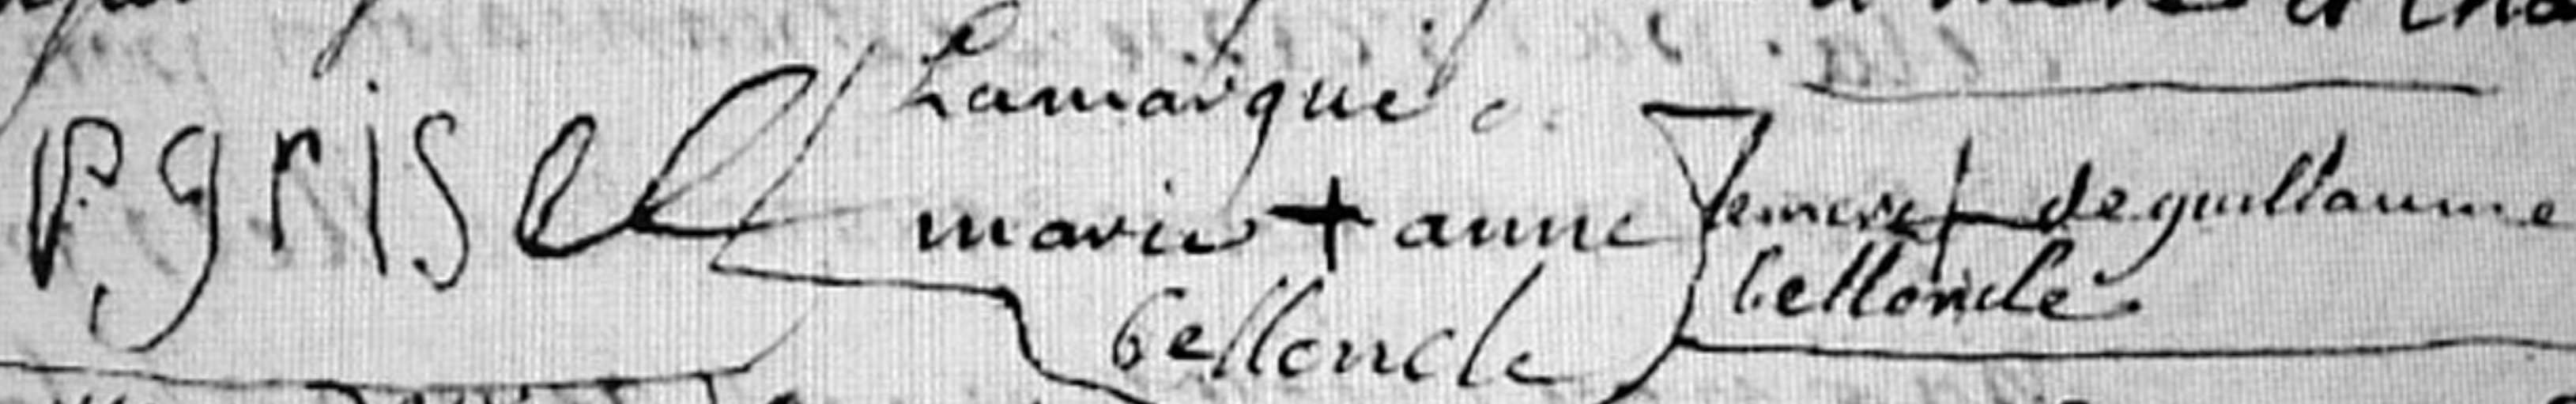 pgrisel
Lamarque de
marie + anne
belloncle
Lemerc + de guillaume
belloncle